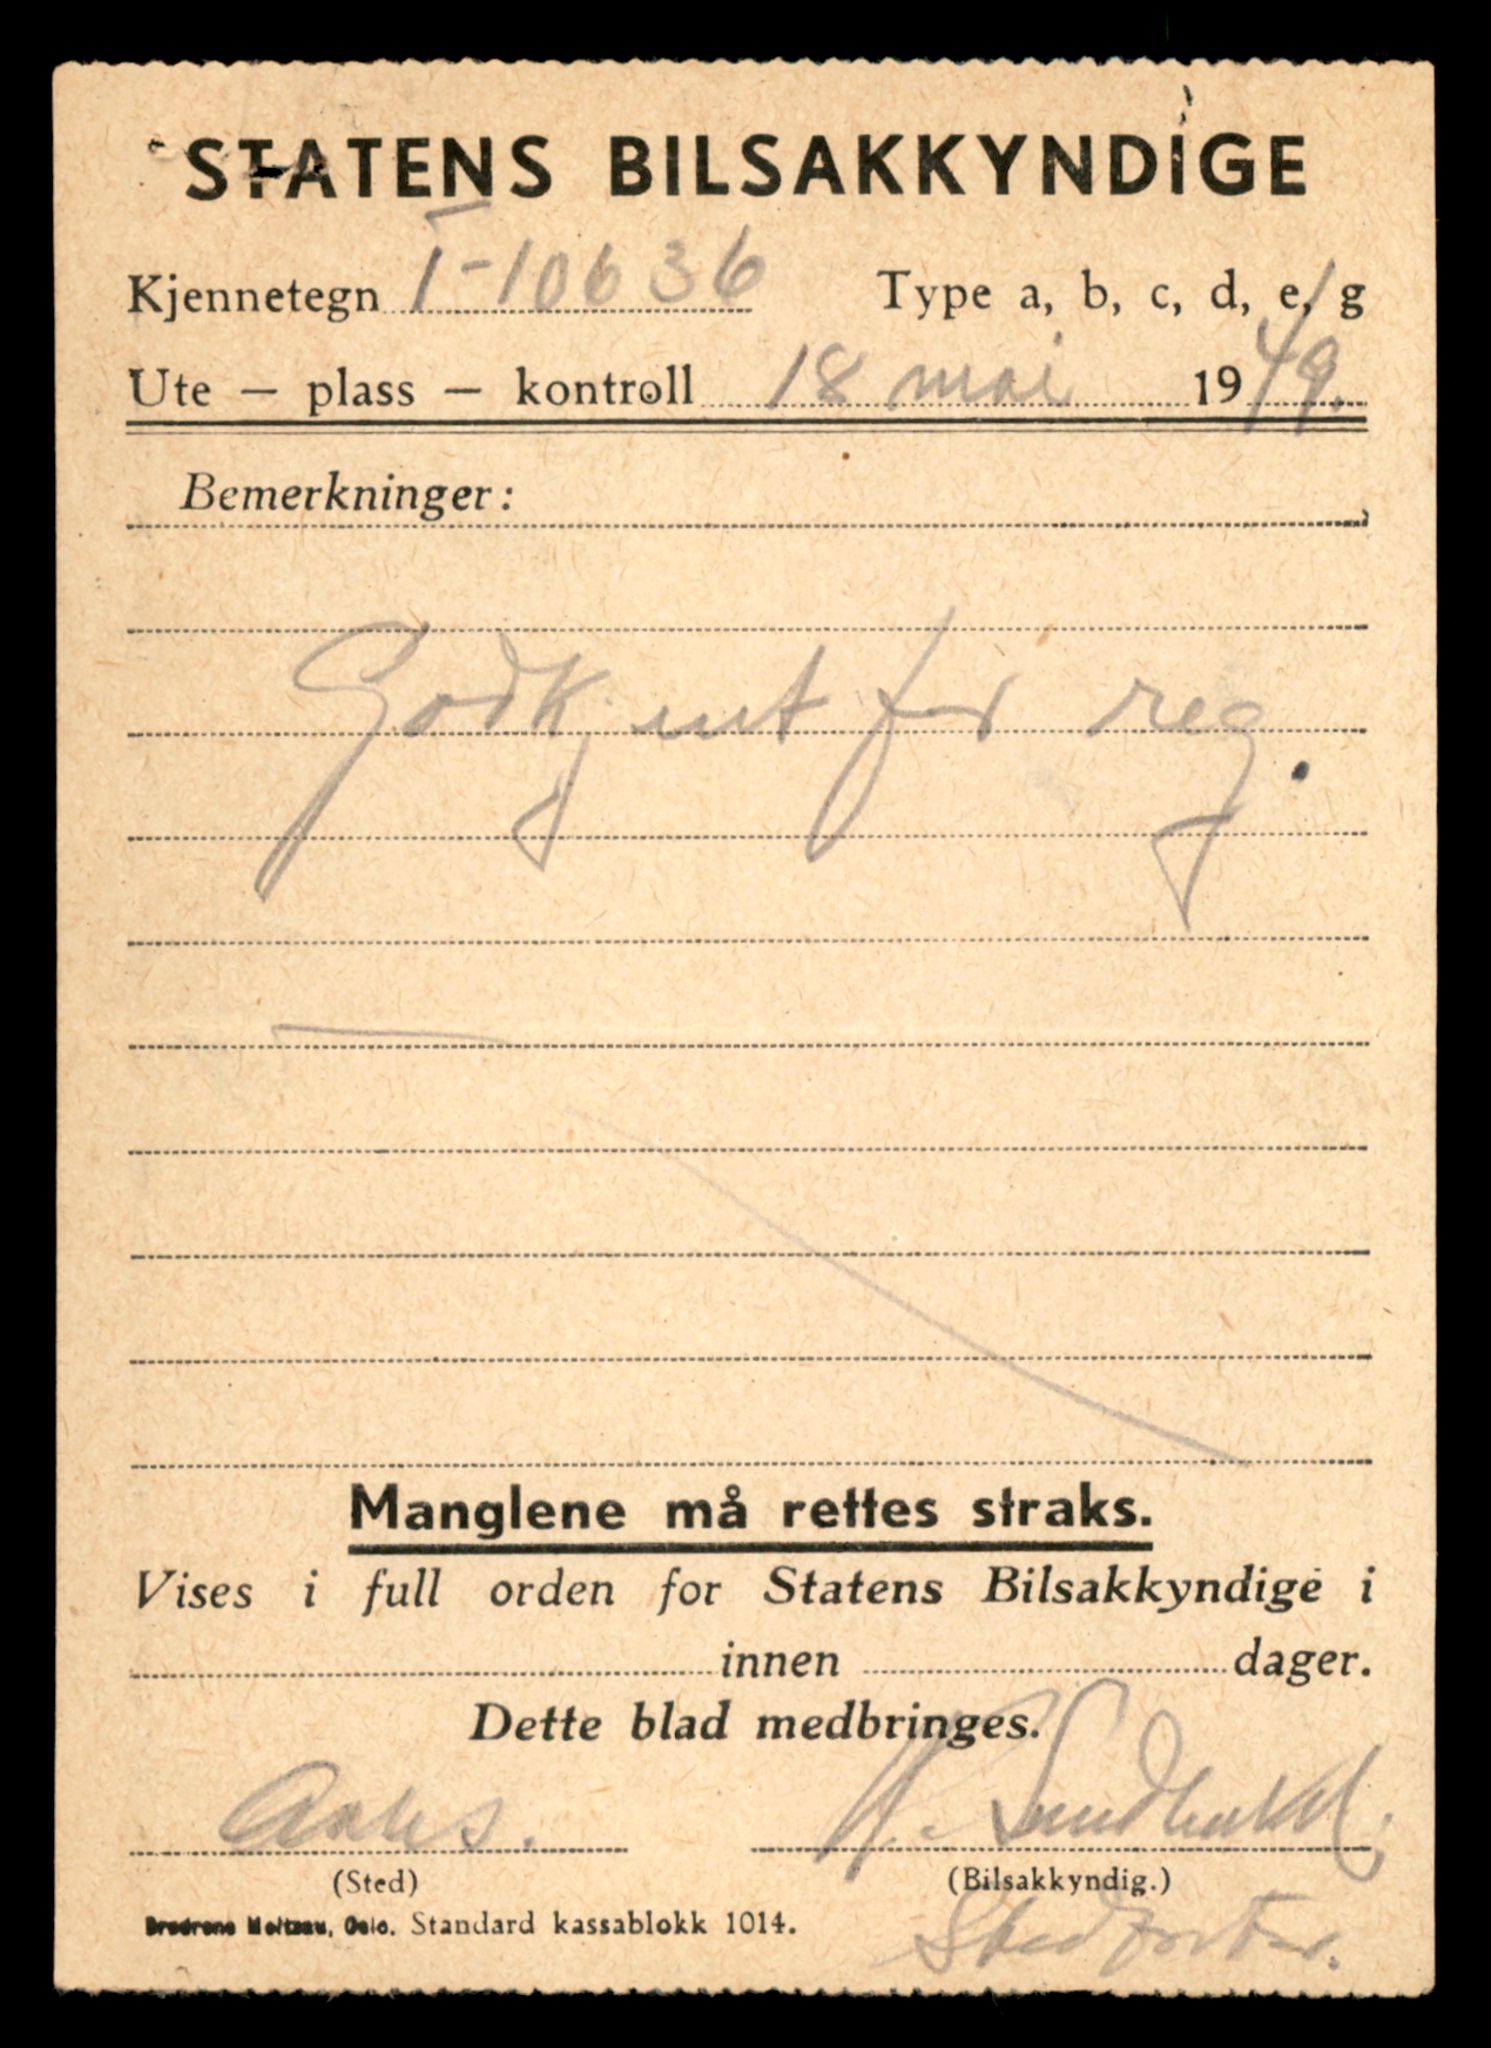 STATENS BILSAKKYNDIGE
Kjennetegn T-10636 Type a, b, c, d, e, g
Ute — plass — kontroll 18 mai 1949.
Bemerkninger:
Godkjent for reg.
Manglene må rettes straks.
Vises i full orden for Statens Bilsakkyndige i
innen dager.
Dette blad medbringes.
(Sted) (Bilsakkyndig.)
Brødrene Meltzau, Oslo. Standard kassablokk 1014.
Stedfortr.